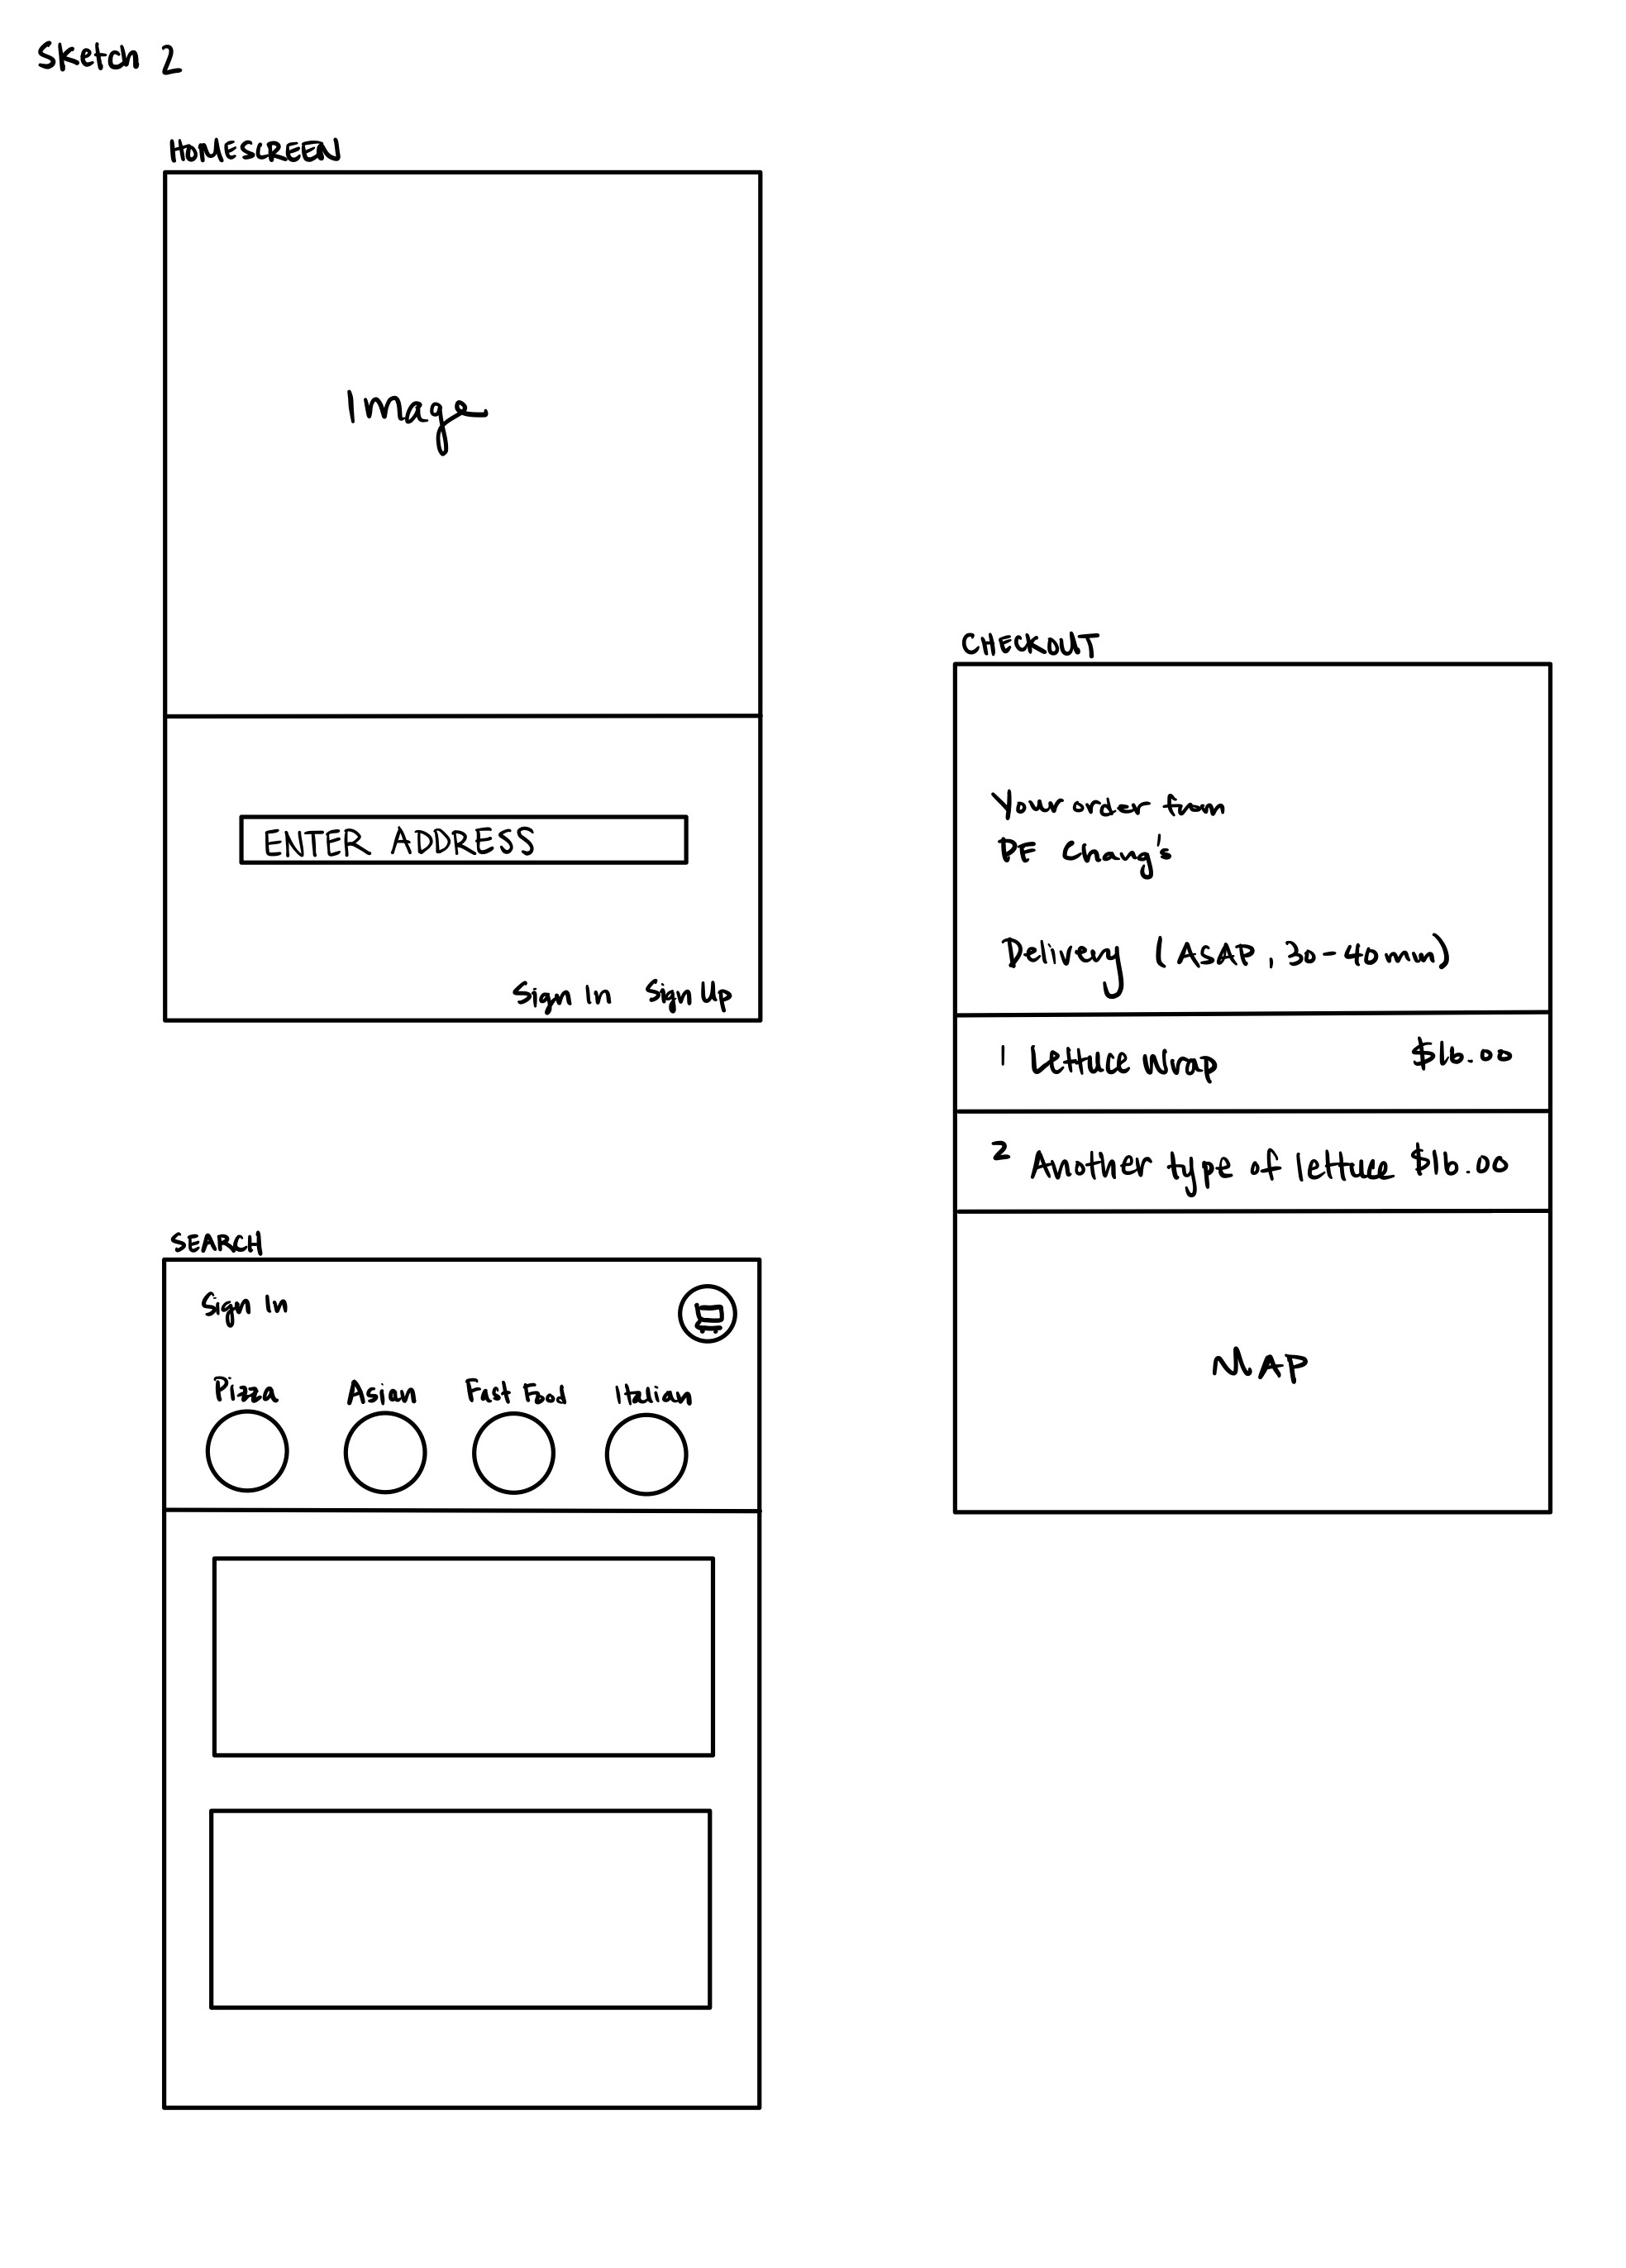 Sketch 2
HOMESCREEN
Image
ENTER ADDRESS
Sign In Sign Up
SEARCH
Sign In
Pizza Asian Fast Food Italian
CHECKOUT
Your order from
PF Chang's
Delivery (ASAP, 30-40min)
1 Lettuce Wrap $16.00
2 Another type of lettuce $16.00
MAP